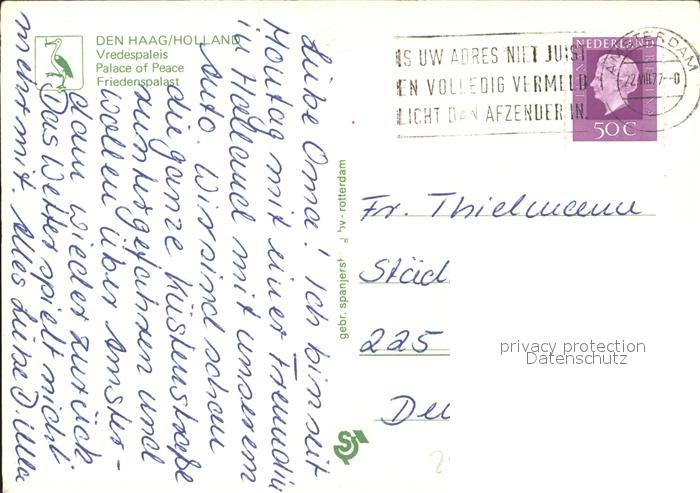 DEN HAAG/HOLLAND
Vredespaleis
Palace of Peace
Friedenspalast
IS UW ADRES NIET JUIST
EN VOLLEDIG VERMELD
LICHT DAN AFZENDER IN.
NEDERLAND
50 C
AMSTERDAM
Liebe Oma! Ich bin seit
Montag mit einer Freundin
in Holland mit unserem
Auto. Wir sind schon
die ganze Küstenstraße
runtergefahren und
wollen über Amster-
dam wieder zurück
Das Wetter spielt nicht
mehr mit. Alles Liebe D. Ulla
gebr. spanjers
bv - rotterdam
Fr. Thielmann
Städ
225
Deu
privacy protection
Datenschutz